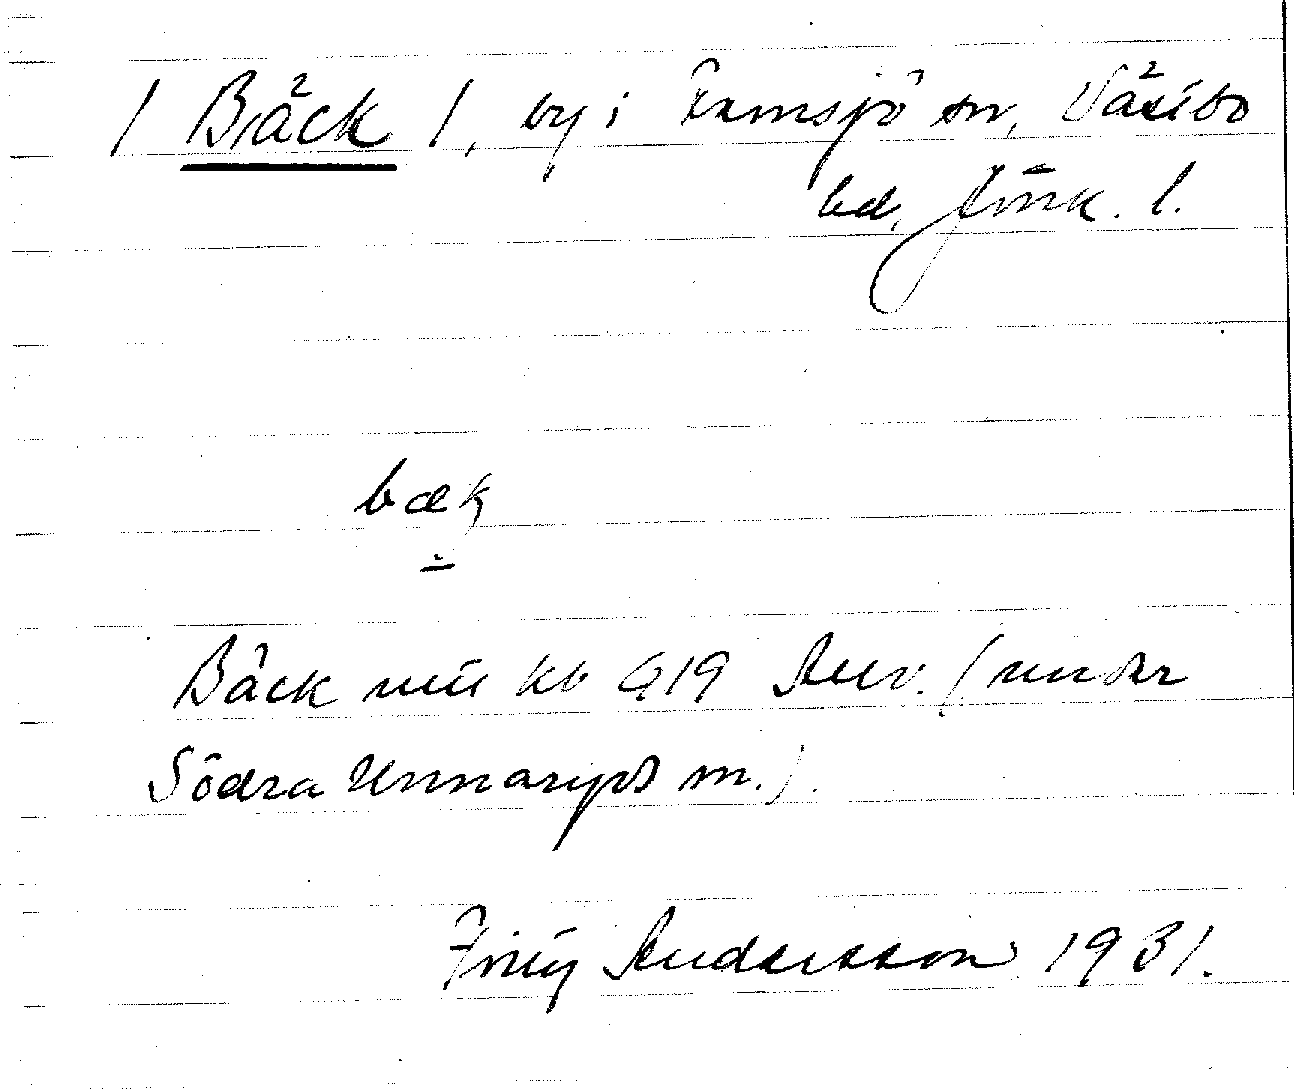 / Bäck /, by i Femsjö sn, Västbo
hd, Jönk. l.
bæk
Bäck nu kb 419 Rev. (under
Södra Unnaryds sn.).
Andersson 1931.